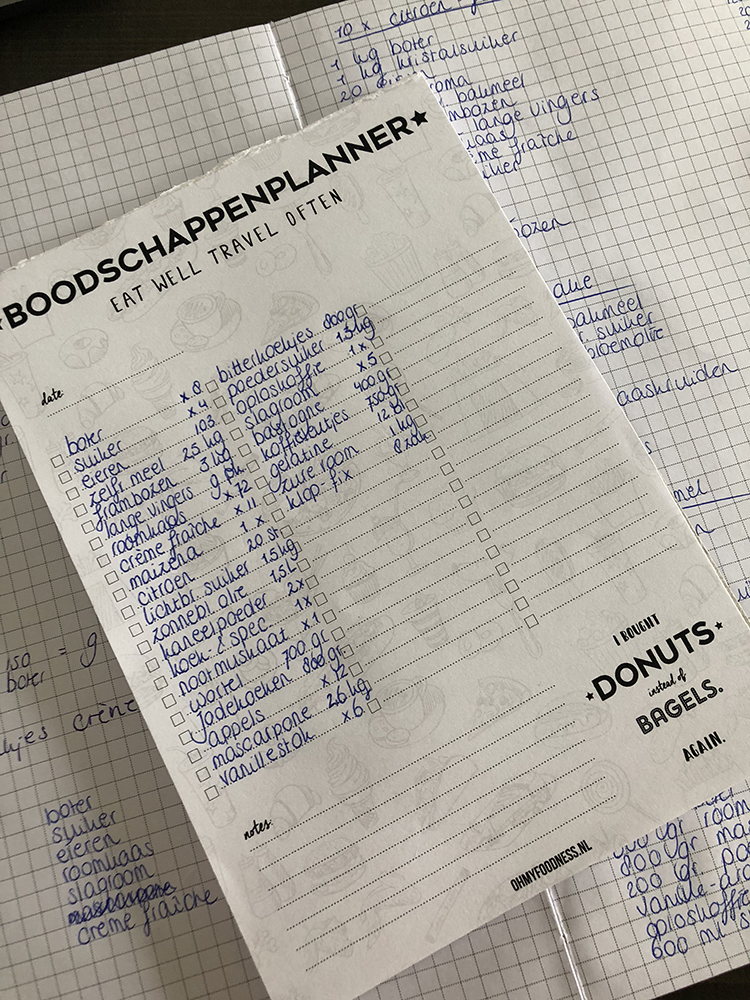 10 x citroen
1 kg boter
1 kg kristalsuiker
20
roma
bakmeel
lange vingers
bakmeel
suiker
slaolie
mel
★BOODSCHAPPENPLANNER★
EAT WELL TRAVEL OFTEN
date:
boter x8
suiker x4
eieren 103
zelfr. meel 2.5 kg
frambozen 3 kg
lange vingers 9 pk
roomkaas x12
crème fraîche x11
maizena 1 x
citroen 20 st
lichtbr. suiker 1.5kg
zonnebl. olie 1,5L
kaneelpoeder 2x
koek & spec 1x
nootmuskaat x1
wortel 700 gr
Jodekoeken 800 gr
appels x12
mascarpone 2.6 kg
vanillestok x6
bitterkoekjes 800gr
poedersuiker 1.3kg
oploskoffie 1x
slagroom x5
bastogne 400gr
750gr
gelatine 12 bl
zure room 1 kg
klop fix
notes:
I BOUGHT
★DONUTS★
instead of
BAGELS.
AGAIN.
OHMYFOODNESS.NL
150 = 9
boter
crème
boter
suiker
eieren
roomkaas
slagroom
mascarpone
crème fraîche
800 gr
200 gr.
oploskoffie
600 ml